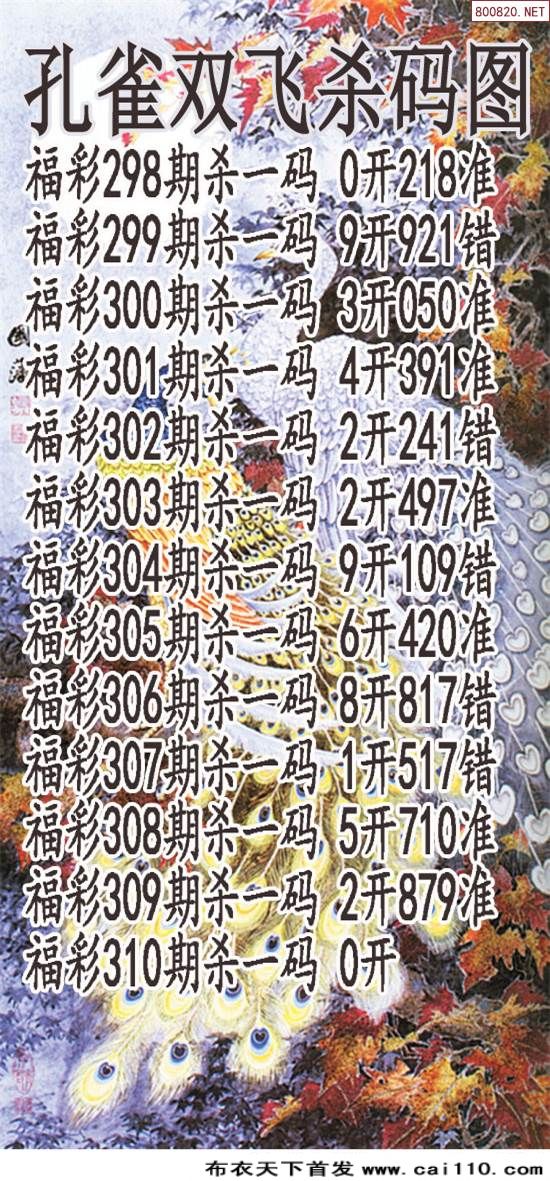 800820.NET
孔雀双飞杀码图
福彩298期杀一码 0开218准
福彩299期杀一码 9开921错
福彩300期杀一码 3开050准
福彩301期杀一码 4开391准
福彩302期杀一码 2开241错
福彩303期杀一码 2开497准
福彩304期杀一码 9开109错
福彩305期杀一码 6开420准
福彩306期杀一码 8开817错
福彩307期杀一码 1开517错
福彩308期杀一码 5开710准
福彩309期杀一码 2开879准
福彩310期杀一码 0开
布衣天下首发 www.cai110.com